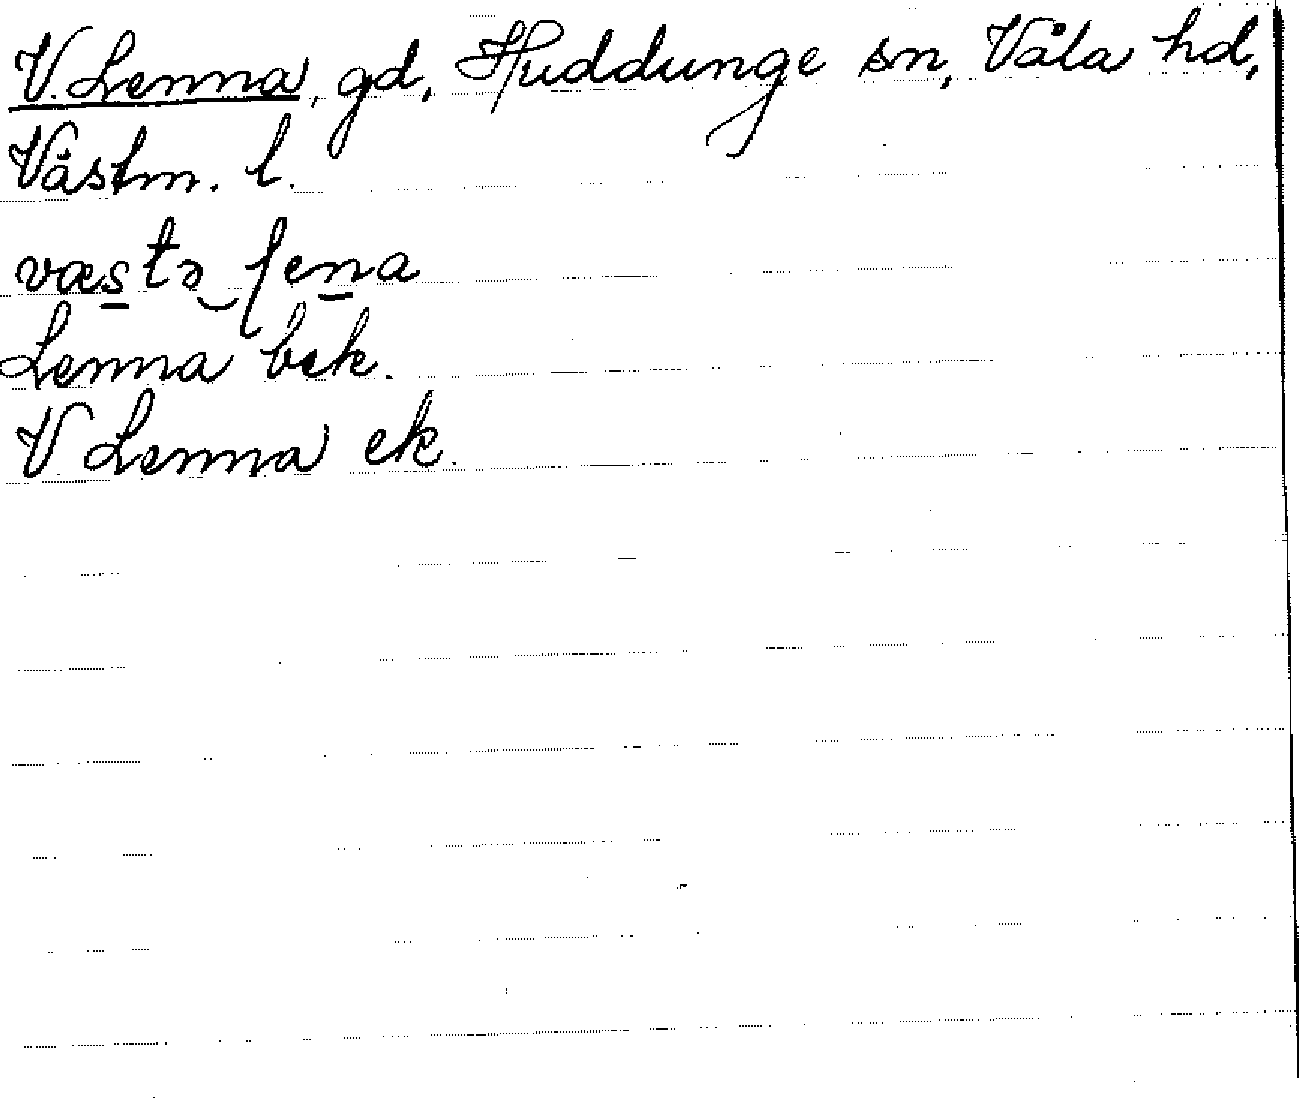 V. Lenna, gd, Huddunge sn, Våla hd,
Västm. l.
væstə‿ſena
Lenna bek.
V Lenna ek.